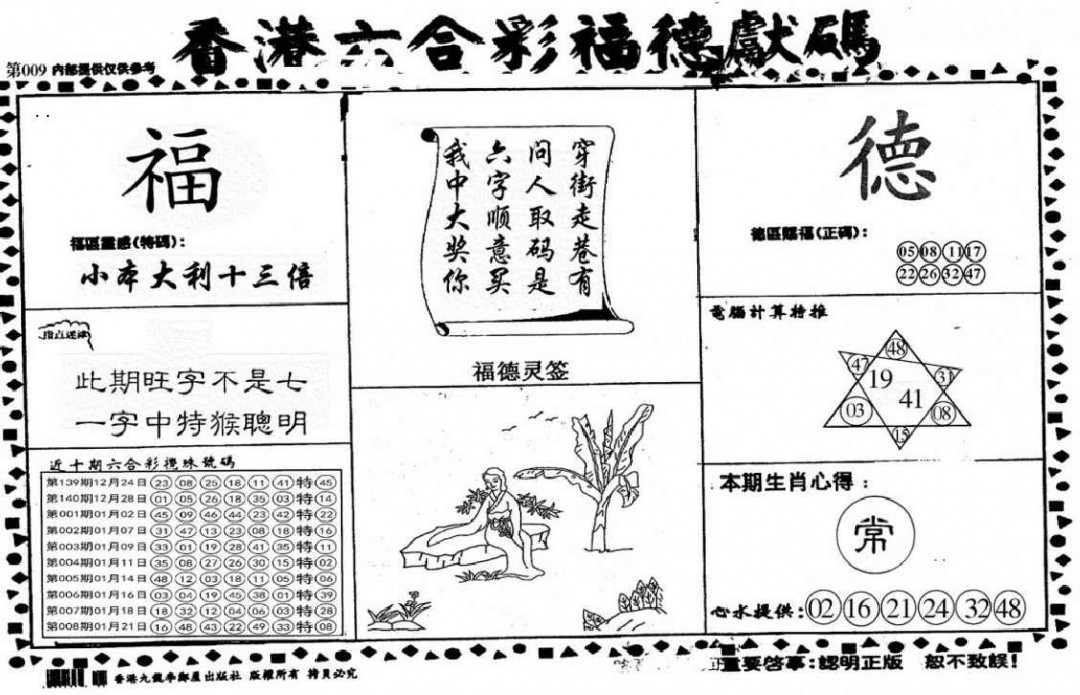 香港六合彩福德獻碼
第009 内部提供仅供参考
福
福區靈感(特碼):
小本大利十三倍
此期旺字不是七
一字中特猴聰明
近十期六合彩攪珠號碼
第139期12月24日 23 08 25 18 11 41 特 45
第140期12月28日 01 05 26 18 35 03 特 14
第001期01月02日 45 09 46 44 23 42 特 22
第002期01月07日 31 47 13 23 08 18 特 16
第003期01月09日 33 01 19 28 41 35 特 11
第004期01月11日 35 08 27 26 30 15 特 02
第005期01月14日 48 12 03 18 11 05 特 06
第006期01月16日 03 04 19 45 38 01 特 39
第007期01月18日 18 32 12 04 06 03 特 28
第008期01月21日 16 48 43 22 49 33 特 08
穿街走巷有
问人取码是
六字顺意买
我中大奖你
福德灵签
德
德區賜福(正碼):
05 08 11 17
22 26 32 47
電腦計算特推
48
47 31
19
41
03 08
15
本期生肖心得:
常
心水提供: 02 16 21 24 32 48
重要啓事:認明正版 般不致誤!
香港九龍李鄭屋出版社 版權所有 拷貝必究